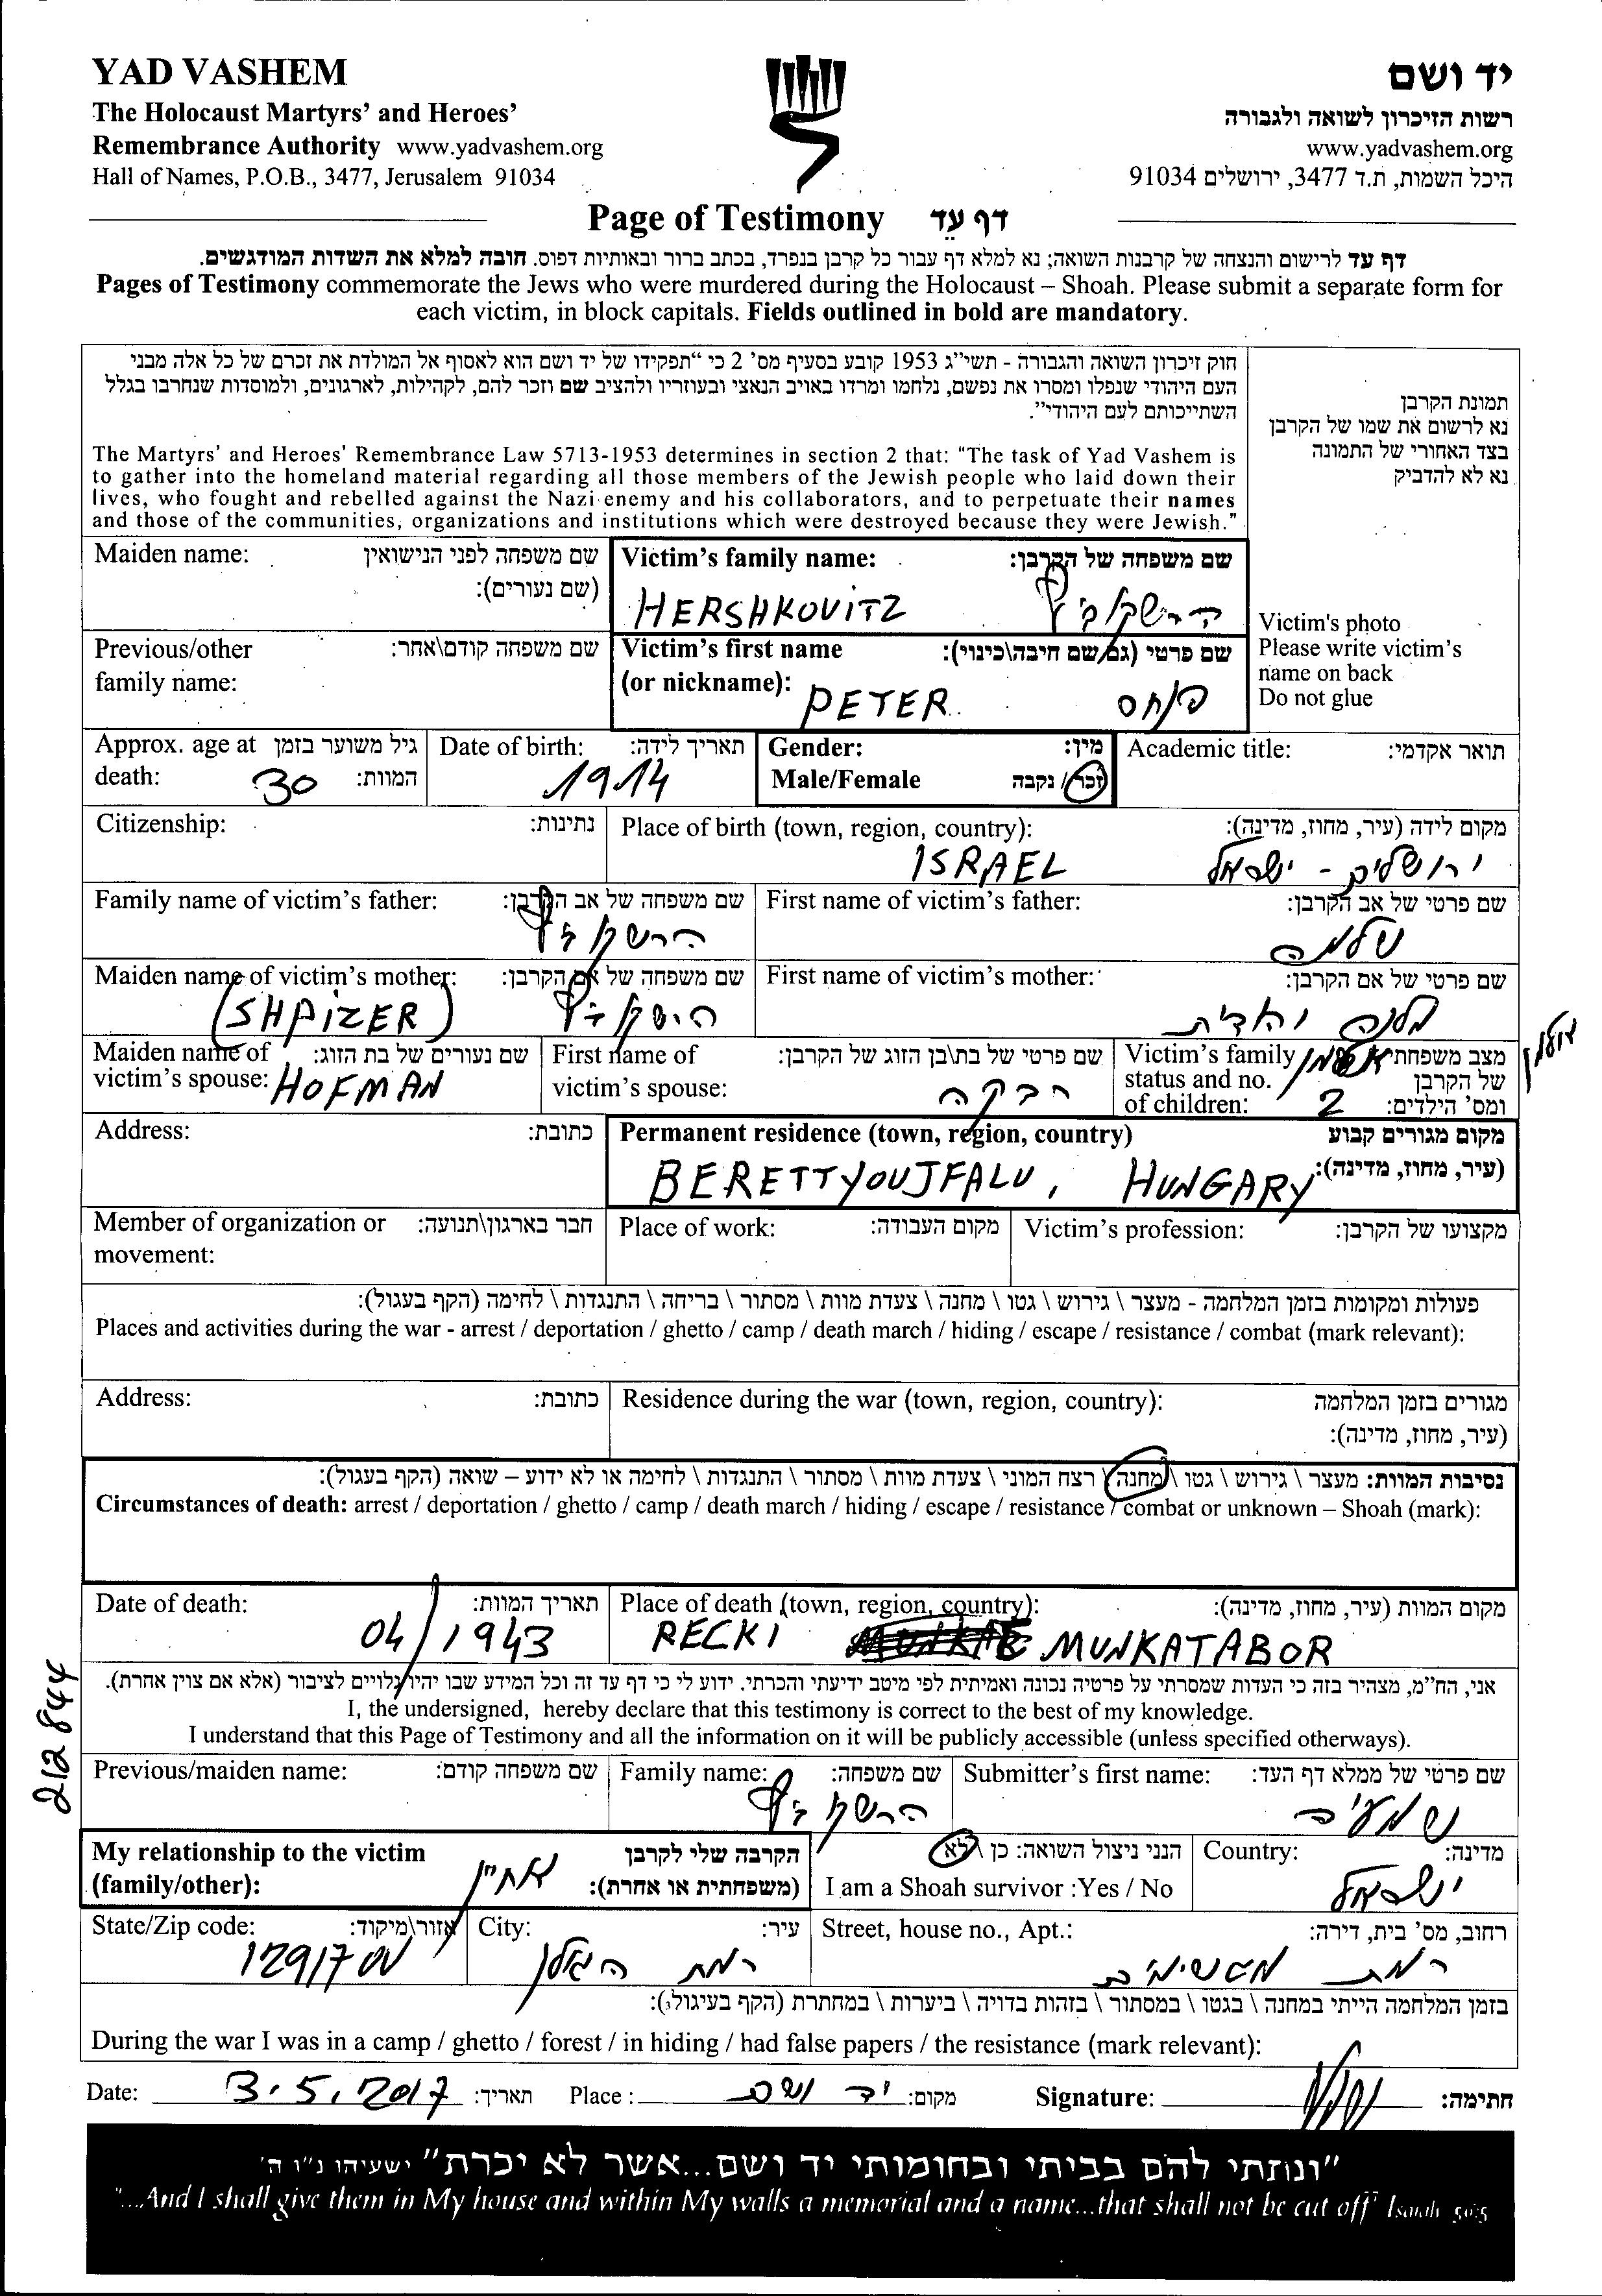 YAD VASHEM
The Holocaust Martyrs' and Heroes'
Remembrance Authority www.yadvashem.org
Hall of Names, P.O.B., 3477, Jerusalem 91034
יד ושם
רשות הזיכרון לשואה ולגבורה
www.yadvashem.org
היכל השמות, ת.ד 3477, ירושלים 91034
Page of Testimony דף עֵד
דף עד לרישום והנצחה של קרבנות השואה; נא למלא דף עבור כל קרבן בנפרד, בכתב ברור ובאותיות דפוס. חובה למלא את השדות המודגשים.
Pages of Testimony commemorate the Jews who were murdered during the Holocaust – Shoah. Please submit a separate form for
each victim, in block capitals. Fields outlined in bold are mandatory.
חוק זיכרון השואה והגבורה - תשי"ג 1953 קובע בסעיף מס' 2 כי "תפקידו של יד ושם הוא לאסוף אל המולדת את זכרם של כל אלה מבני
העם היהודי שנפלו ומסרו את נפשם, נלחמו ומרדו באויב הנאצי ובעוזריו ולהציב שם וזכר להם, לקהילות, לארגונים, ולמוסדות שנחרבו בגלל
השתייכותם לעם היהודי".
The Martyrs' and Heroes' Remembrance Law 5713-1953 determines in section 2 that: "The task of Yad Vashem is
to gather into the homeland material regarding all those members of the Jewish people who laid down their
lives, who fought and rebelled against the Nazi enemy and his collaborators, and to perpetuate their names
and those of the communities, organizations and institutions which were destroyed because they were Jewish."
תמונת הקרבן
נא לרשום את שמו של הקרבן
בצד האחורי של התמונה
נא לא להדביק
Victim's photo
Please write victim's
name on back
Do not glue
Maiden name: שם משפחה לפני הנישואין
(שם נעורים):
Victim's family name: שם משפחה של הקרבן:
HERSHKOVITZ הרשקוביץ
Previous/other שם משפחה קודם\אחר:
family name:
Victim's first name שם פרטי (גם שם חיבה\כינוי):
(or nickname): PETER פנחס
Approx. age at גיל משוער בזמן
death: 30 המוות:
Date of birth: תאריך לידה:
1914
Gender: מין:
Male/Female זכר / נקבה
Academic title: תואר אקדמי:
Citizenship: נתינות:
Place of birth (town, region, country): מקום לידה (עיר, מחוז, מדינה):
ISRAEL ירושלים - ישראל
Family name of victim's father: שם משפחה של אב הקרבן:
הרשקוביץ
First name of victim's father: שם פרטי של אב הקרבן:
שלמה
Maiden name of victim's mother: שם משפחה של אם הקרבן:
(SHPIZER) הרשקוביץ
First name of victim's mother: שם פרטי של אם הקרבן:
יהודית
Maiden name of שם נעורים של בת הזוג:
victim's spouse: HOFMAN
First name of שם פרטי של בת\בן הזוג של הקרבן:
victim's spouse: רבקה
Victim's family מצב משפחתי
status and no. של הקרבן
of children: 2 ומס' הילדים:
Address: כתובת:
Permanent residence (town, region, country) מקום מגורים קבוע
(עיר, מחוז, מדינה):
BERETTYOUJFALU, HUNGARY
Member of organization or חבר בארגון\תנועה:
movement:
Place of work: מקום העבודה:
Victim's profession: מקצועו של הקרבן:
פעולות ומקומות בזמן המלחמה - מעצר \ גירוש \ גטו \ מחנה \ צעדת מוות \ מסתור \ בריחה \ התנגדות \ לחימה (הקף בעגול):
Places and activities during the war - arrest / deportation / ghetto / camp / death march / hiding / escape / resistance / combat (mark relevant):
Address: כתובת:
Residence during the war (town, region, country): מגורים בזמן המלחמה
(עיר, מחוז, מדינה):
נסיבות המוות: מעצר \ גירוש \ גטו \ מחנה \ רצח המוני \ צעדת מוות \ מסתור \ התנגדות \ לחימה או לא ידוע – שואה (הקף בעגול):
Circumstances of death: arrest / deportation / ghetto / camp / death march / hiding / escape / resistance / combat or unknown – Shoah (mark):
Date of death: תאריך המוות:
04/1943
Place of death (town, region, country): מקום המוות (עיר, מחוז, מדינה):
RECKI MUNKATABOR
אני, הח"מ, מצהיר בזה כי העדות שמסרתי על פרטיה נכונה ואמיתית לפי מיטב ידיעתי והכרתי. ידוע לי כי דף עד זה וכל המידע שבו יהיו גלויים לציבור (אלא אם צוין אחרת).
I, the undersigned, hereby declare that this testimony is correct to the best of my knowledge.
I understand that this Page of Testimony and all the information on it will be publicly accessible (unless specified otherways).
212844
Previous/maiden name: שם משפחה קודם:
Family name: שם משפחה:
הרשקוביץ
Submitter's first name: שם פרטי של ממלא דף העד:
My relationship to the victim הקרבה שלי לקרבן
(family/other): (משפחתית או אחרת):
אחיין
הנני ניצול השואה: כן \ לא
I am a Shoah survivor :Yes / No
Country: מדינה:
ישראל
State/Zip code: אזור\מיקוד:
1291700
City: עיר:
רמת הגולן
Street, house no., Apt.: רחוב, מס' בית, דירה:
רמת מגשימים
בזמן המלחמה הייתי במחנה \ בגטו \ במסתור \ בזהות בדויה \ ביערות \ במחתרת (הקף בעיגול):
During the war I was in a camp / ghetto / forest / in hiding / had false papers / the resistance (mark relevant):
Date: 3.5.2017 תאריך: Place : יד ושם מקום: Signature: חתימה:
"ונתתי להם בביתי ובחומותי יד ושם...אשר לא יכרת" ישעיהו נ"ו ה'
"...And I shall give them in My house and within My walls a memorial and a name...that shall not be cut off" Isaiah 56:5